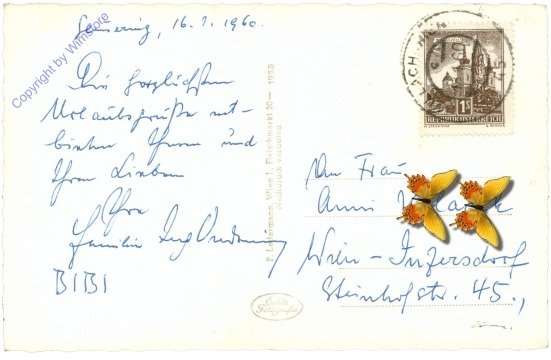 Semmering, 16.1.1960.
Die herzlichsten
Urlaubsgrüße ent-
bieten Ihnen und
Ihren Lieben
Ihre
Familie
BIBI
Copyright by Wimstore
P. Ledermann, Wien I, Fleischmarkt 20 — 1958
1S
REPUBLIK ÖSTERREICH
An Frau
Anni
Wien-Inzersdorf
Steinhofstr. 45.,
Echte
Fotografie